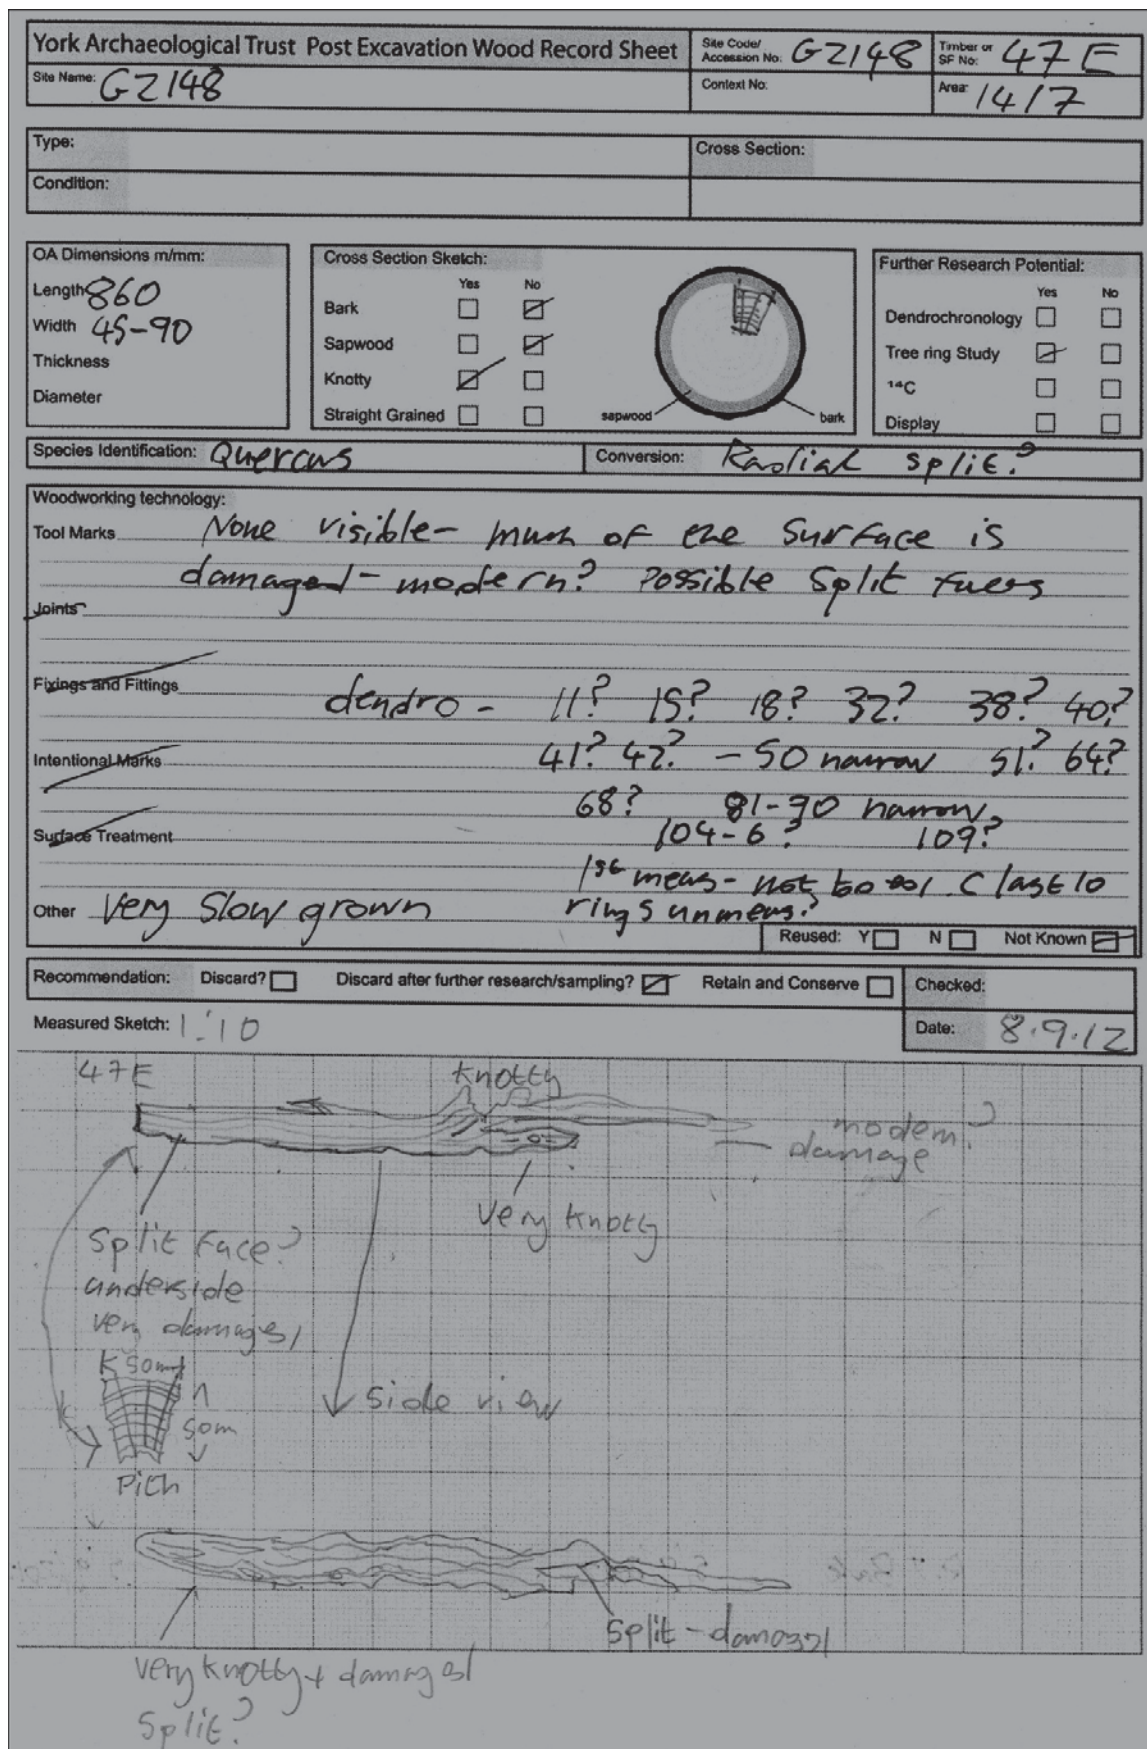 York Archaeological Trust Post Excavation Wood Record Sheet
Site Code/ Accession No: GZ148
Timber or SF No: 47E
Site Name: GZ148
Context No:
Area: 14/7
Type:
Cross Section:
Condition:
OA Dimensions m/mm:
Length 860
Width 45-90
Thickness
Diameter
Cross Section Sketch:
Yes No
Bark
Sapwood
Knotty
Straight Grained
sapwood
bark
Further Research Potential:
Yes No
Dendrochronology
Tree ring Study
14C
Display
Species Identification: Quercus
Conversion: Radial split?
Woodworking technology:
Tool Marks None visible - much of the surface is
damaged - modern? Possible split faces
Joints
Fixings and Fittings
dendro - 11? 15? 18? 32? 38? 40?
Intentional Marks
41? 42? - 50 narrow 51? 64?
68? 81-90 narrow
Surface Treatment
104-6? 109?
1st meas - not to C last 10
Other Very slow grown
rings unmeas?
Reused: Y N Not Known
Recommendation: Discard? Discard after further research/sampling? Retain and Conserve
Checked:
Measured Sketch: 1:10
Date: 8.9.12
47E
knotty
modern?
damage
very knotty
Split face?
underside
very damaged
50m
50m
side view
Pith
split - damaged
very knotty + damaged
Split?